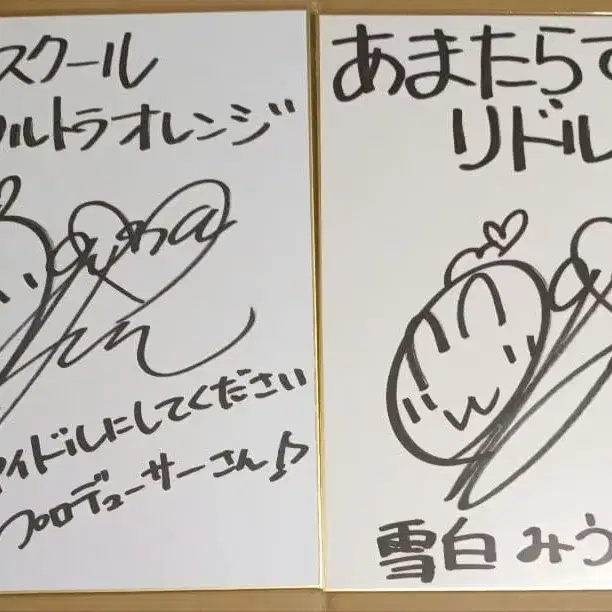 スクール
ウルトラオレンジ
アイドルにしてください
プロデューサーさん♪
あまたらす
リドル
雪白 みう